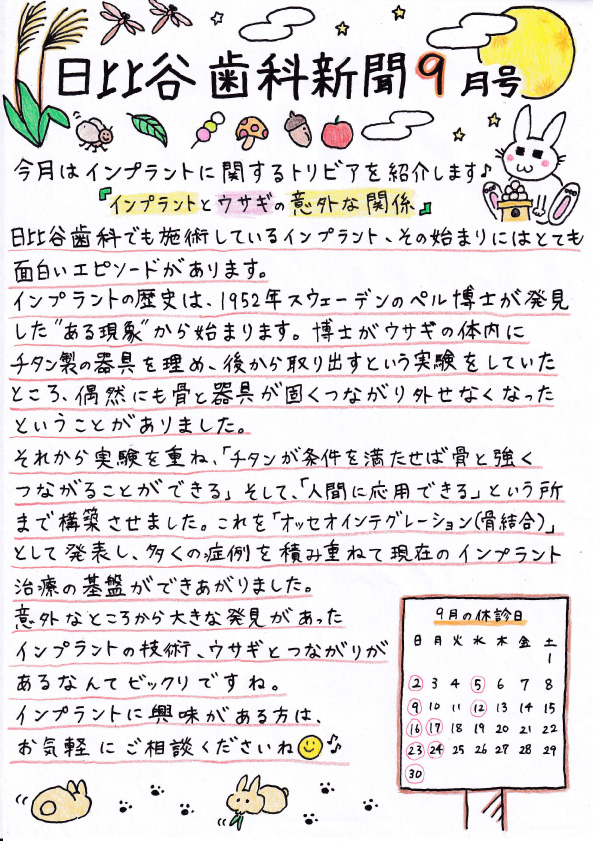 日比谷歯科新聞9月号
今月はインプラントに関するトリビアを紹介します♪
『インプラントとウサギの意外な関係』
日比谷歯科でも施術しているインプラント、その始まりにはとても
面白いエピソードがあります。
インプラントの歴史は、1952年スウェーデンのペル博士が発見
した"ある現象"から始まります。博士がウサギの体内に
チタン製の器具を埋め、後から取り出すという実験をしていた
ところ、偶然にも骨と器具が固くつながり外せなくなった
ということがありました。
それから実験を重ね、「チタンが条件を満たせば骨と強く
つながることができる」そして、「人間に応用できる」という所
まで構築させました。これを「オッセオインテグレーション(骨結合)」
として発表し、多くの症例を積み重ねて現在のインプラント
治療の基盤ができあがりました。
意外なところから大きな発見があった
インプラントの技術、ウサギとつながりが
あるなんてビックリですね。
インプラントに興味がある方は、
お気軽にご相談くださいね♪
9月の休診日
日 月 火 水 木 金 土
1
2 3 4 5 6 7 8
9 10 11 12 13 14 15
16 17 18 19 20 21 22
23 24 25 26 27 28 29
30